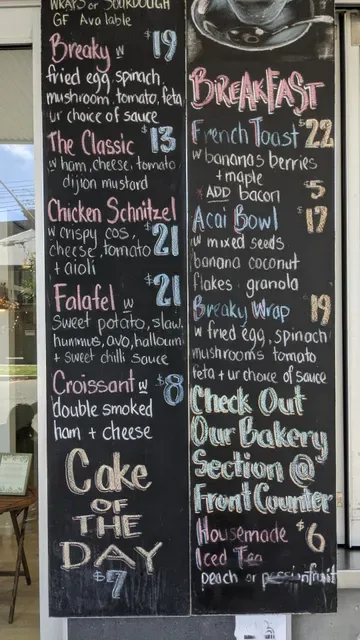 WRAPS or SOURDOUGH
GF Available
Breaky w $19
fried egg, spinach,
mushroom, tomato, feta
ur choice of sauce
The Classic $13
w ham, cheese, tomato
dijion mustard
Chicken Schnitzel
w crispy cos, $21
cheese, tomato
+ aioli
Falafel w $21
sweet potato, slaw,
hummus, avo, halloumi
+ sweet chilli sauce
Croissant w $8
double smoked
ham + cheese
Cake
OF
THE
DAY
$7
BREAKFAST
French Toast $22
w bananas berries
+ maple
ADD bacon $5
Acai Bowl $17
w mixed seeds
banana coconut
flakes granola
Breaky Wrap 19
w fried egg, spinach
mushrooms tomato
feta + ur choice of sauce
Check Out
Our Bakery
Section @
Front Counter
Housemade $6
Iced Tea
peach or passionfruit